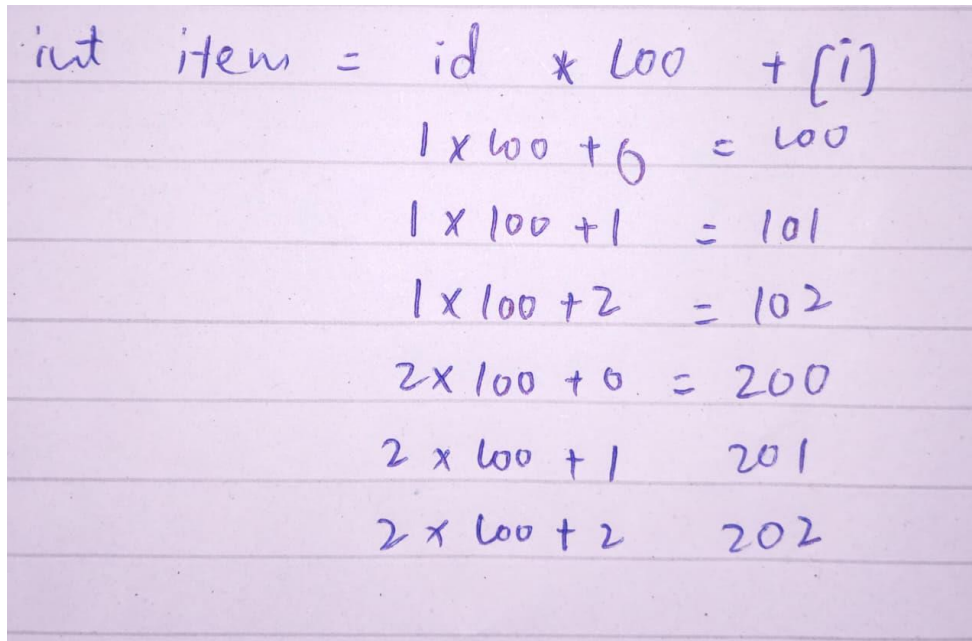 int item = id * 100 + [i]
1 x 100 + 0 = 100
1 x 100 + 1 = 101
1 x 100 + 2 = 102
2 x 100 + 0 = 200
2 x 100 + 1 201
2 x 100 + 2 202